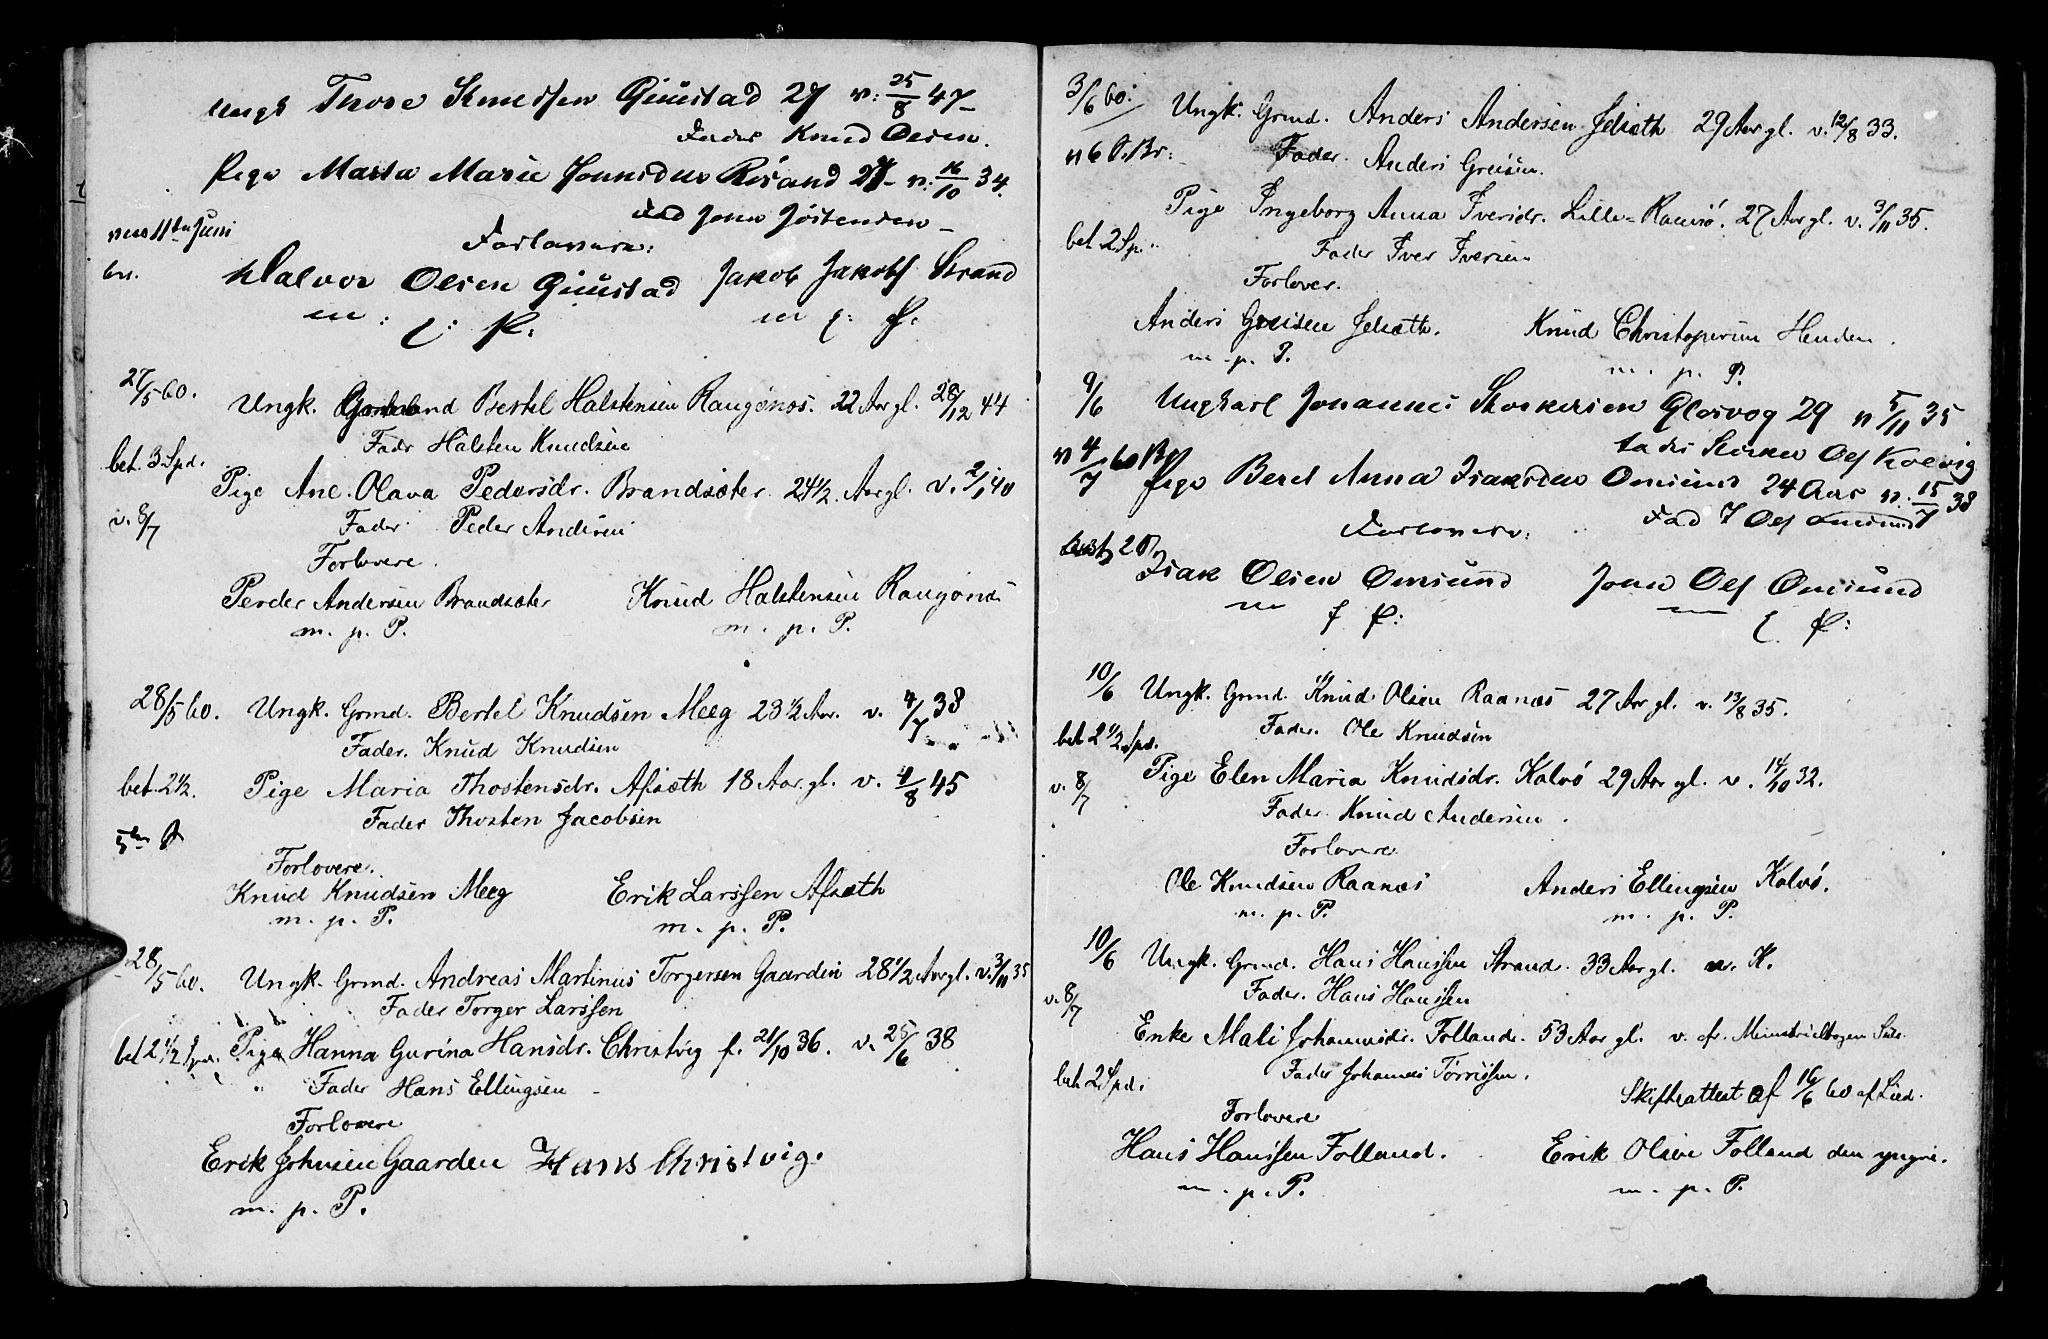 Ungk Thore Knudsen Guustad 27 v: 25/8 47-
Fader Knud Olsen.
Pige Marta Marie Jonnsdur Rösand 27- v: 16/10 34.
Fad Jonn Jöstensen-
Juni
bet. Forlovere:
Halvor Olsen Guustad Jakob Jakobs Strand
m: f: P: m f: P:
27/5 60.
Ungk. Bertel Halstensen Raugönos. 22 Aar gl. 28/12 44
Fadr Halsten Knudsen
bet. 3 Spd.
Pige Ane. Olava Pedersdr. Brandsæter 24½ Aar gl. v. 2/1 40
v. 8/7 Fader Peder Andersen
Forlovere.
Peder Andersen Brandsæter Knud Halstensen Raugönos
m. p. P. m. p. P.
28/5 60. Ungk. Grmd. Bertel Knudsen Meeg 23½ Aar. v. 4/7 38
Fader. Knud Knudsen
bet. 2½. Pige Maria Thostensdr. Afsæth 18 Aar. gl. v. 4/8 45
Fader Thosten Jacobsen
Forlovere.
Knud Knudsen Meeg Erik Larssen Afsæth
m. p. P. m. p. P.
28/5 60. Ungk. Grmd. Andreas Martinus Torgersen Gaarden 28½ Aar gl. v. 3/11 35
Fader Torger Larssen
bet 2½ Spd. Pige Hanna Gurina Hansdr. Christvig f. 21/10 36. v. 25/6 38
Fader Hans Ellingsen
Forlovere
Erik Johnsen Gaarden Hans Christvig.
m. p. P.
3/6 60. Ungk. Grmd. Anders Andersen Jelsæth 29 Aar gl. v. 12/8 33.
Fader. Anders Greisen.
Pige Ingeborg Anna Iversdr. Lille-Ramsö. 27 Aar gl. v. 3/11 35.
bet. 2 Sp. Fader Iver Iversen
Forlover.
Anders Greisen Jelsæth. Knud Christopersen Henden.
m. p. P. m. p. P.
9/6 Ungkarl Johannes Storkersen Glosvog 29 v 5/11 35
Fader Storker Ols Kolvig
4/7 60 Pige Beret Anna Isaksdur Omsund 24 Aar v. 15/7 38
Forlovere: Fad I Ols Omsund
Isak Olsen Omsund John Ols Omsund
m f P: m f P:
10/6 Ungk. Grmd. Knud Olsen Raanæs 27 Aar gl. v. 13/8 35.
Fader. Ole Knudsen
bet 2½ Spd.
Pige Elen Maria Knudsdr. Kalvö 29 Aar gl. v. 14/10 32.
v. 8/7
Fader Knud Andersen.
Forlovere
Ole Knudsen Raanæs Anders Ellingsen Kalvö.
m. p. P. m. p. P.
10/6 Ungk. Grmd. Hans Hanssen Strand. 33 Aar gl. v. K.
v. 8/7 Fader. Hans Hanssen
Enke Mali Johannesdr. Folland. 53 Aar gl. v. cfr. Ministerialbogen
Fader Johannes Törrissen.
bet 2 Spd. Skifteattest af 16/6 60
Forlovere
Hans Hanssen Folland. Erik Olsen Folland den yngre.
m. p. P. m. p. P.